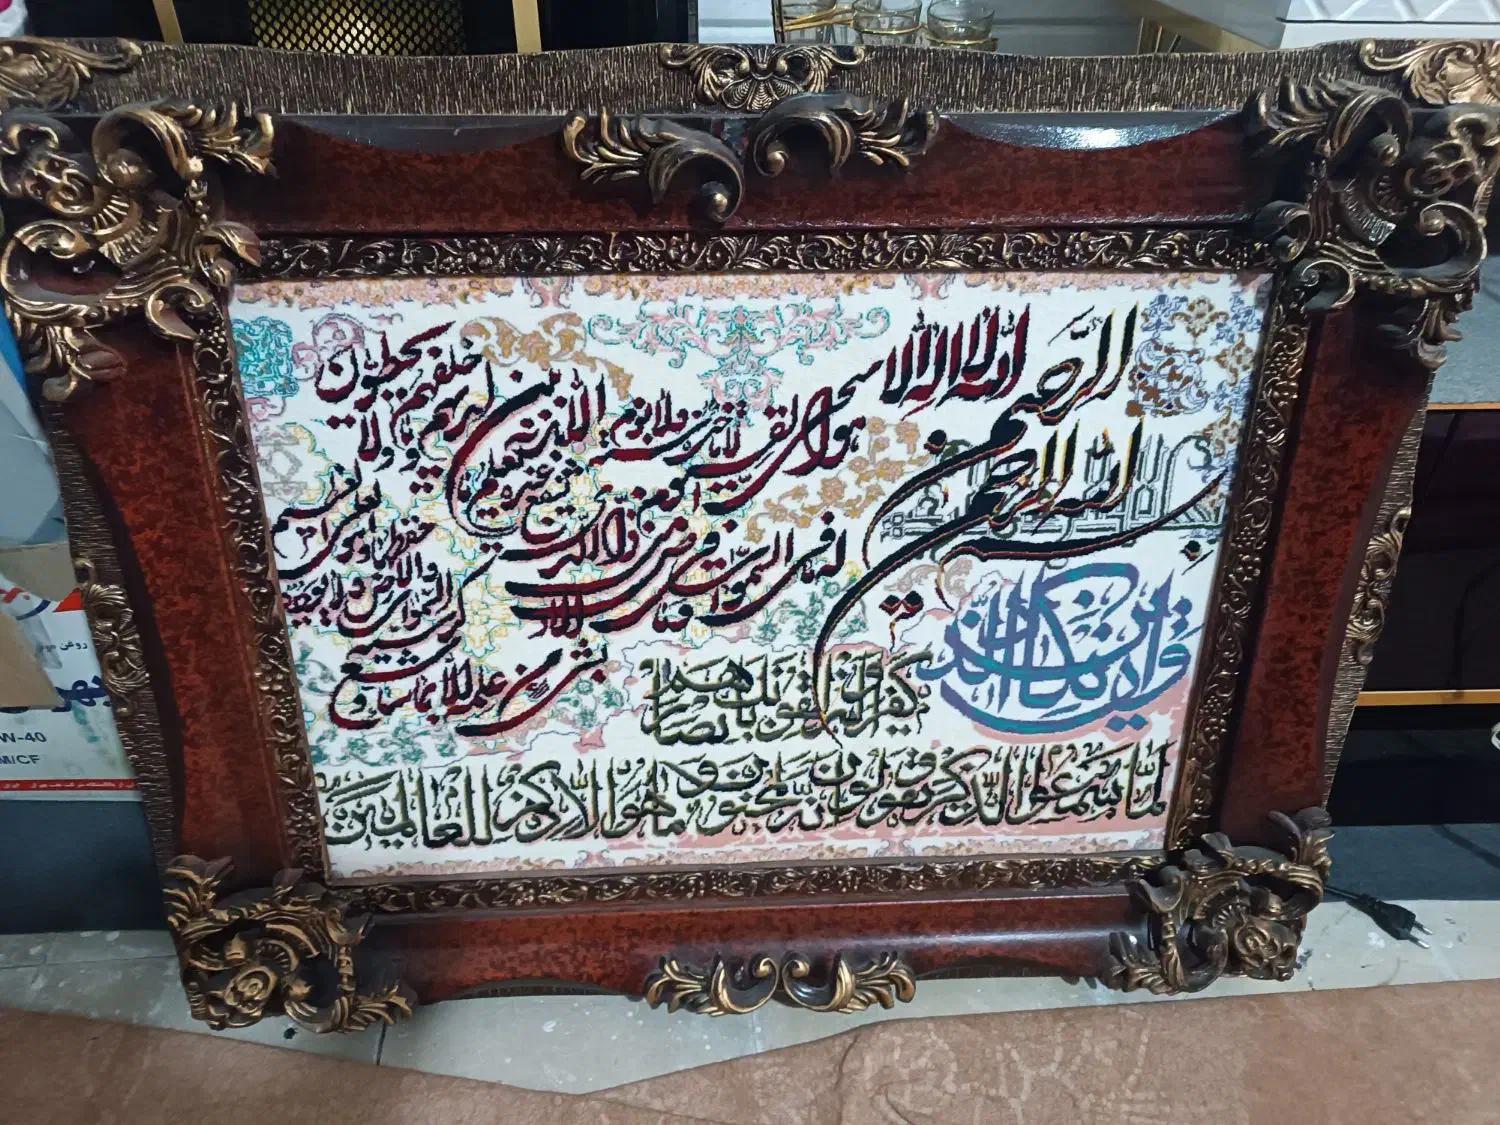 بسم الله الرحمن الرحيم
الله لا إله إلا هو الحي القيوم لا تأخذه سنة ولا نوم
له ما في السموات وما في الأرض من ذا الذي يشفع عنده إلا بإذنه يعلم ما بين أيديهم وما خلفهم ولا يحيطون
بشئ من علمه إلا بما شاء وسع كرسيه السموات والأرض ولا يؤده حفظهما وهو العلي العظيم
وإن يكاد الذين
كفروا ليزلقونك بأبصارهم
لما سمعوا الذكر ويقولون إنه لمجنون وما هو إلا ذكر للعالمين
روغن
W-40